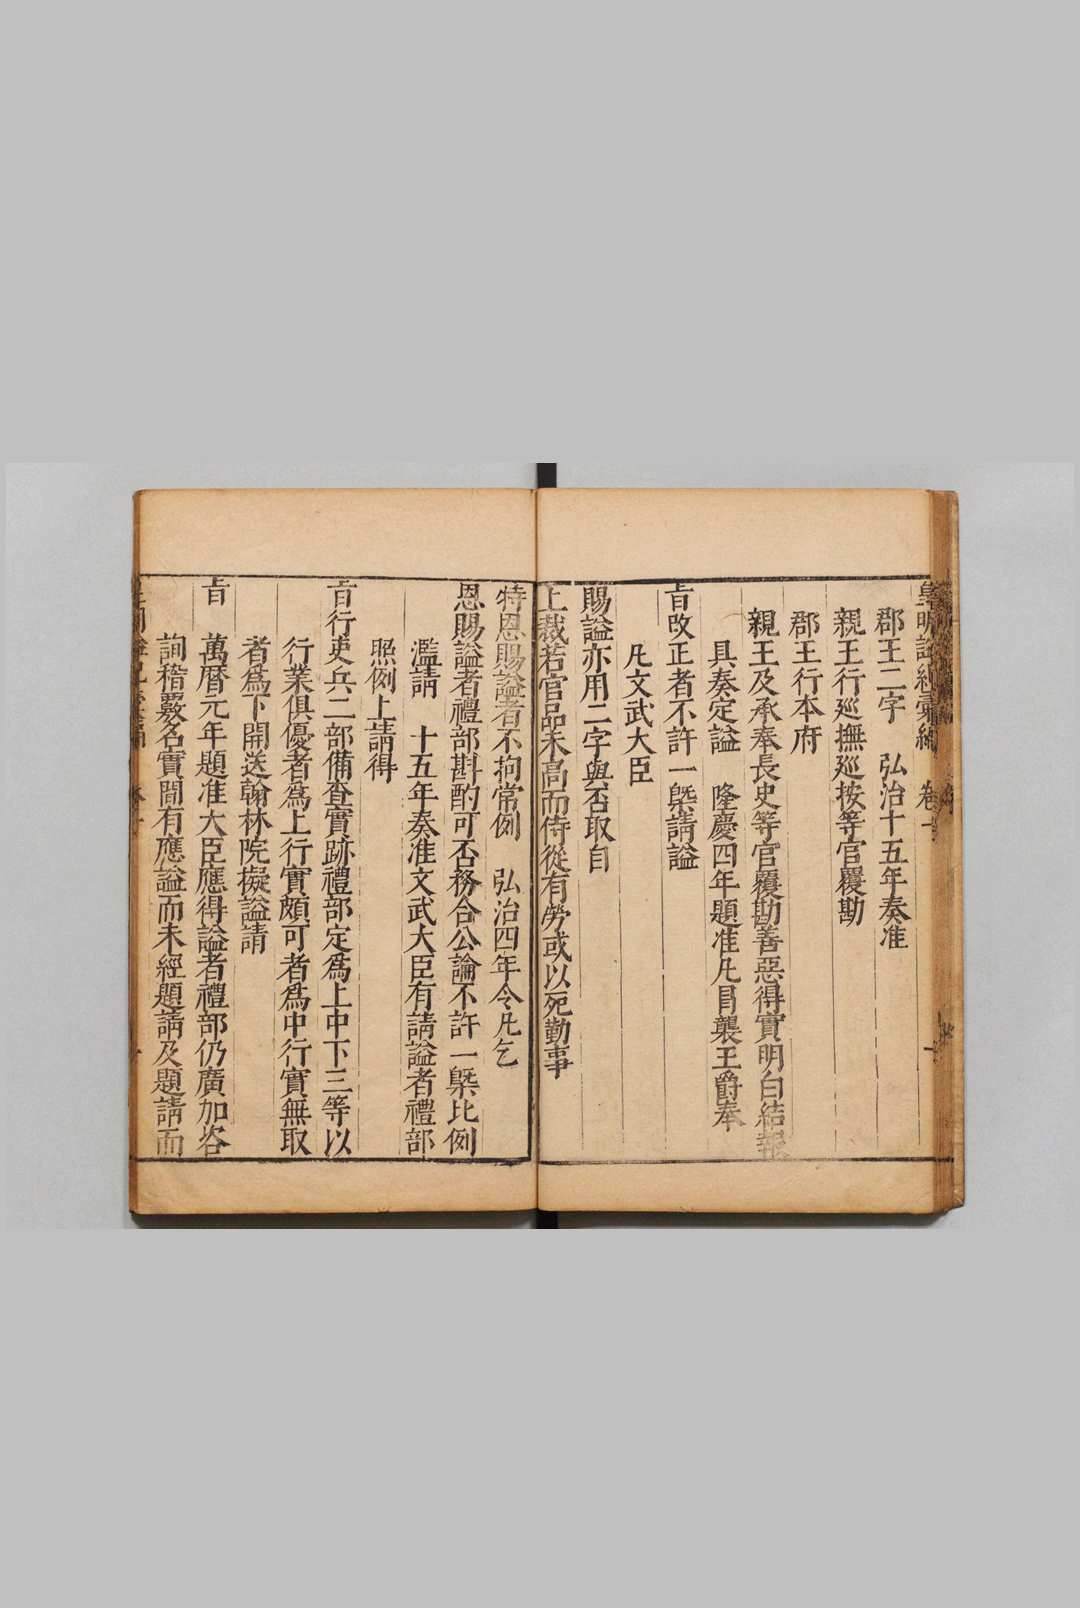 皇明謚紀彙編 卷一
郡王二字 弘治十五年奏准
親王行巡撫巡按等官覆勘
郡王行本府
親王及承奉長史等官覆勘善惡得實明白結報
具奏定謚 隆慶四年題准凡冒襲王爵奉
旨改正者不許一槩請謚
凡文武大臣
賜謚亦用二字與否取自
上裁若官品未高而侍從有勞或以死勤事
特恩賜謚者不拘常例 弘治四年令凡乞
恩賜謚者禮部斟酌可否務合公論不許一槩比例
濫請 十五年奏准文武大臣有請謚者禮部
照例上請得
旨行吏兵二部備查實跡禮部定爲上中下三等以
行業俱優者爲上行實頗可者爲中行實無取
者爲下開送翰林院擬謚請
旨
萬曆元年題准大臣應得謚者禮部仍廣加咨
詢稽覈名實間有應謚而未經題請及題請而